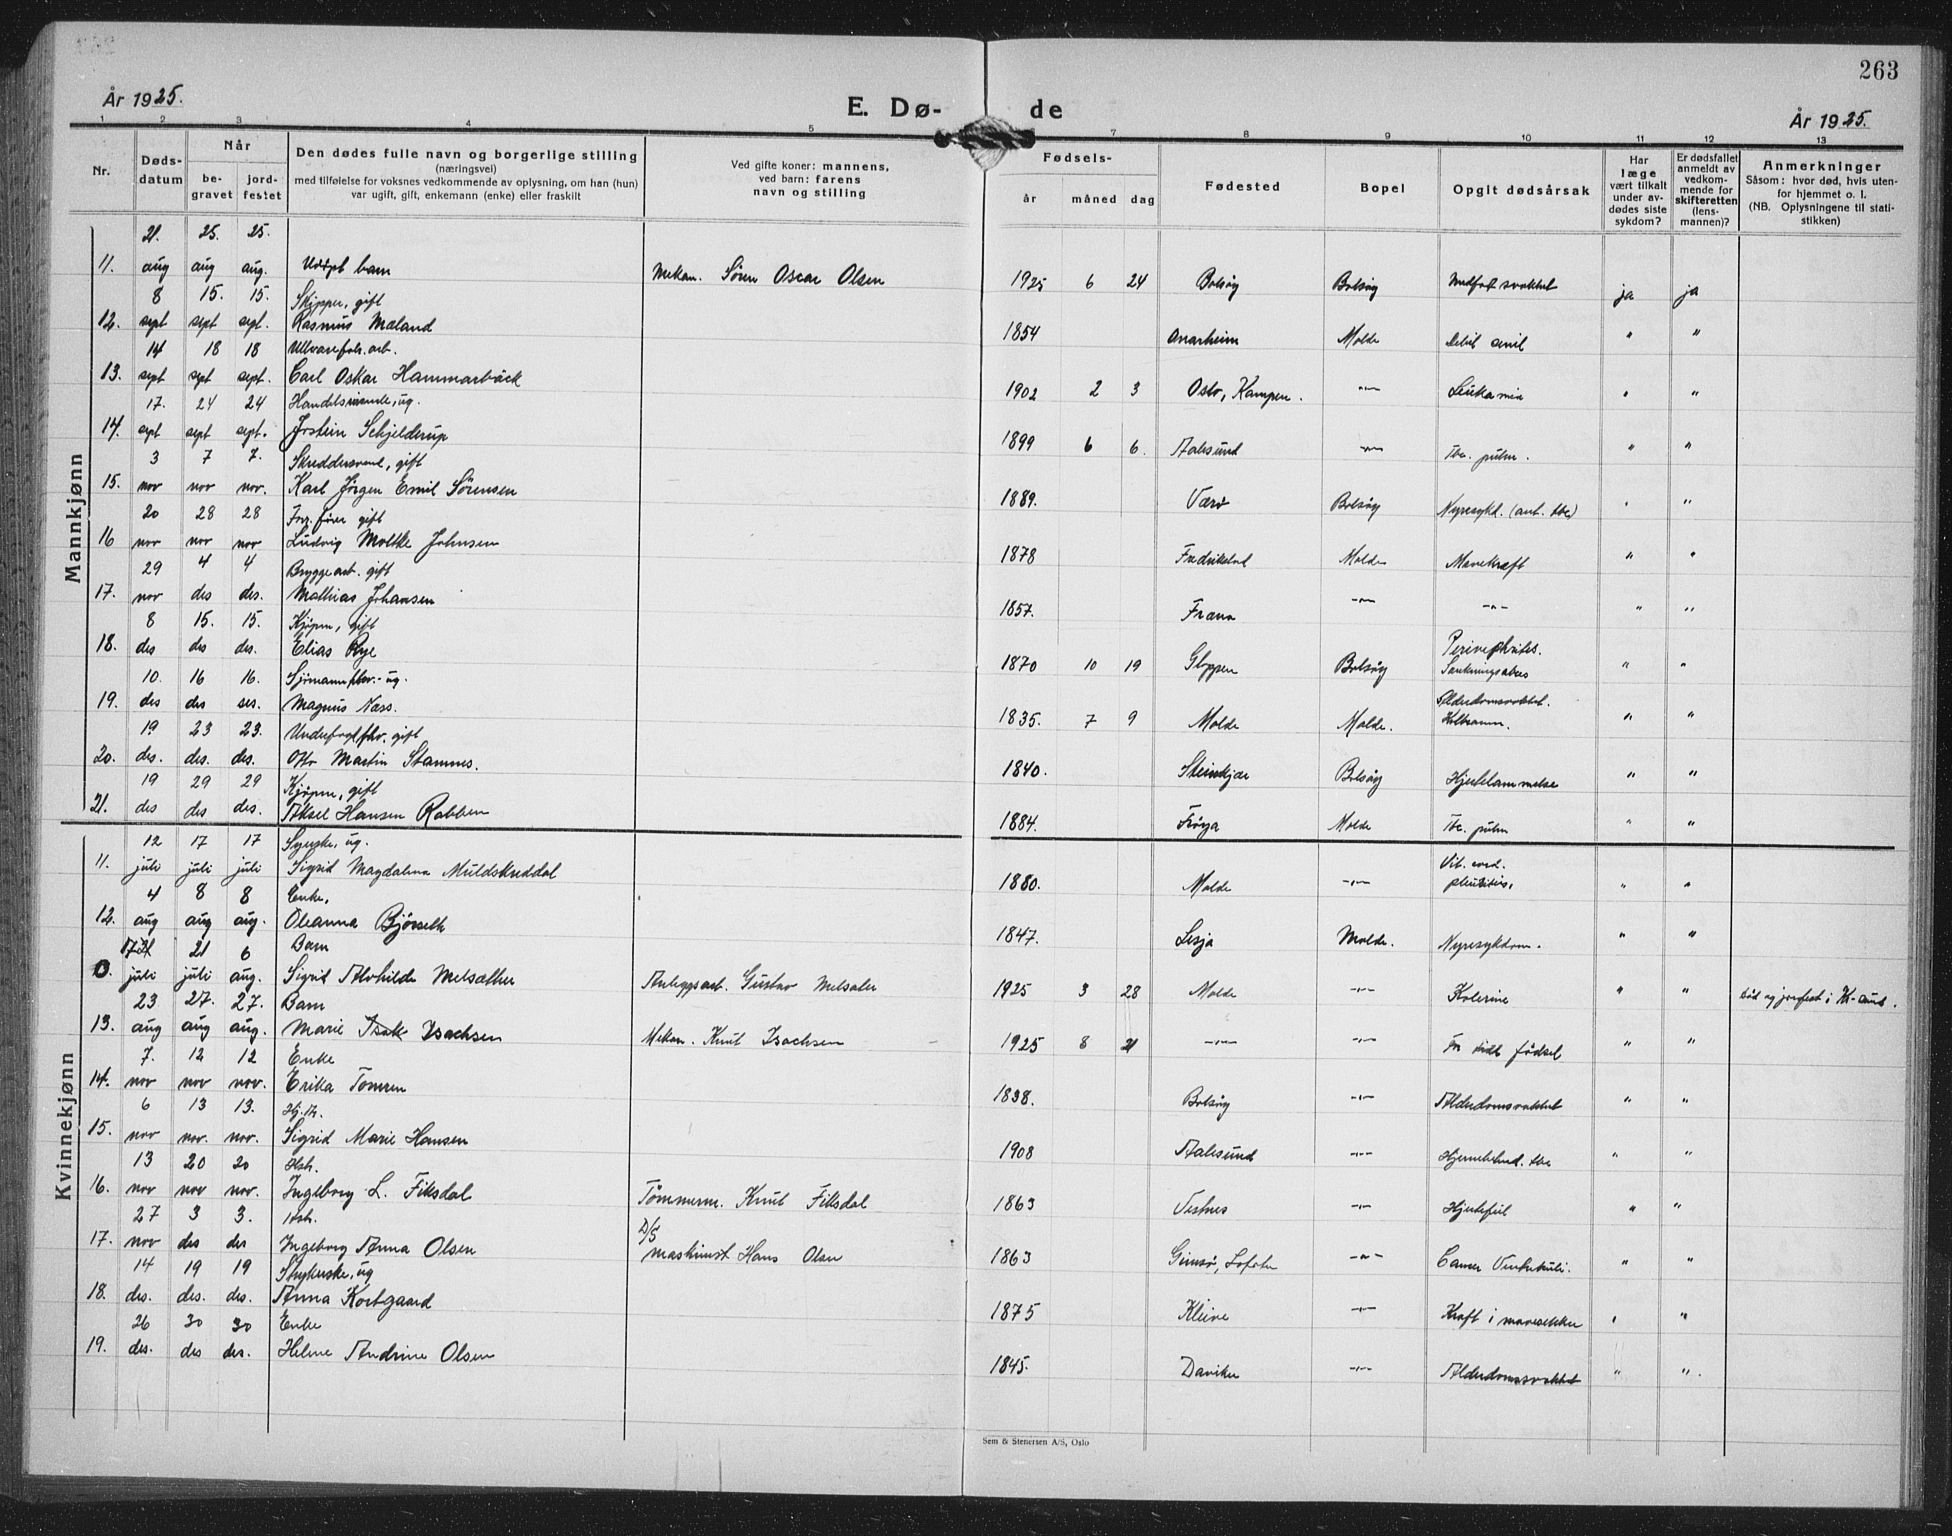 263
År 1925.
E. Dø-
de
År 1925.
1 2 3 4 5 7 8 9 10 11 12 13
Nr.
Døds-
datum
Når
be-
gravet
jord-
festet
Den dødes fulle navn og borgerlige stilling
(næringsvei)
med tilføielse for voksnes vedkommende av oplysning, om han (hun)
var ugift, gift, enkemann (enke) eller fraskilt
Ved gifte koner: mannens,
ved barn: farens
navn og stilling
Fødsels-
år måned dag
Fødested
Bopel
Opgit dødsårsak
Har
læge
vært tilkalt
under av-
dødes siste
sykdom?
Er dødsfallet
anmeldt av
vedkom-
mende for
skifteretten
(lens-
mannen)?
Anmerkninger
Såsom: hvor død, hvis uten-
for hjemmet o. l.
(NB. Oplysningene til stati-
stikken)
Mannkjønn
21. 25. 25.
11. aug aug aug. Udøpt barn Mekan. Sören Oscar Olsen 1925 6 24 Bolsöy Bolsöy Medfødt svakhet ja ja
8 15. 15. Skipper, gift
12. sept sept sept. Rasmus Mæland 1854 Molde " "
14 18 18
13. sept sept sept. Carl Oskar Hammarbäck 1902 2 3 Oslo, Kampen. -"- Leukämie " "
17. 24 24 ug.
14. sept sept sept. Jostein Schjelderup 1899 6 6. Aalesund -"- Tbc. pulm. " "
3 7 7. Skreddersvend, gift
15. nov nov nov. Karl Jörgen Emil Sörensen 1889. Værö Bolsöy Nyresykd. (ant. tbc) " "
20 28 28 gift
16 nov nov nov Ludvig Moltke Johnsen 1878 Fredrikstad Molde Mavekræft " "
29 4 4 Bryggearb. gift
17. nov des des. Mathias Johansen 1857. Fræna -"- -"- " "
8 15. 15. Kjöpm, gift
18. des des des. Elias Rye 1870 10 19 Gloppen Bolsöy " "
10. 16 16. ug.
19. des des ses. Magnus Næss. 1835. 7 9 Molde Molde. Alderdomssvakhet. " "
19 23 23. gift
20. des. des. des. Otto Martin Stamnes. 1840. Steinkjær Bolsöy Hjertelammelse " "
19 29 29 Kjöpm, gift
21. des des des. Aksel Hansen Rabben 1884. Fröya Molde Tbc. pulm " "
Kvinnekjønn
12 17 17 Syerske, ug.
11. juli juli juli Sigrid Magdalena Muldskreddal 1880. Molde -"- Vit. cord. " "
4 8 8 Enke,
12. aug aug aug. Oleanna Bjørseth 1847. Lesja Molde. Nyresykdom. " "
21 6 Barn
0. juli juli aug. Sigrid Alvhilde Melsæther Anleggsarb. Gustav Melsæter 1925 3 28 Molde -"- Kolerine " " Död og jordfest i
23 27. 27. Barn
13. aug aug aug. Marie Isachsen Mekan. Knut Isachsen 1925 8 21 -"- -"- For tidl födsel " "
7. 12 12 Enke
14. nov nov nov. Erika Tomren 1838. Bolsöy -"- Alderdomssvakhet " "
6 13 13.
15. nov nov. nov. Sigrid Marie Hansen 1908 Aalesund -"- tbc " "
13 20 20 Hstr.
16. nov nov nov. Ingeborg L. Fiksdal Tömmerm. Knut Fiksdal 1863 Vestnes -"- Hjertefeil " "
27 3 3. Hstr. D/S
17. nov des des Ingeborg Anna Olsen maskinist Hans Olsen 1863 Gimsö, Lofoten -"- Cancer Ventriculi. " "
14 19 19 Strykerske, ug
18. des. des. des. Anna Kortgaard 1875 Kleive -"- Kræft i mavesekken " "
26 30 30 Enke
19. des. des des. Helene Andrine Olsen 1845. Daviken -"- Alderdomssvakhet " ".
Sem & Stenersen A/S, Oslo